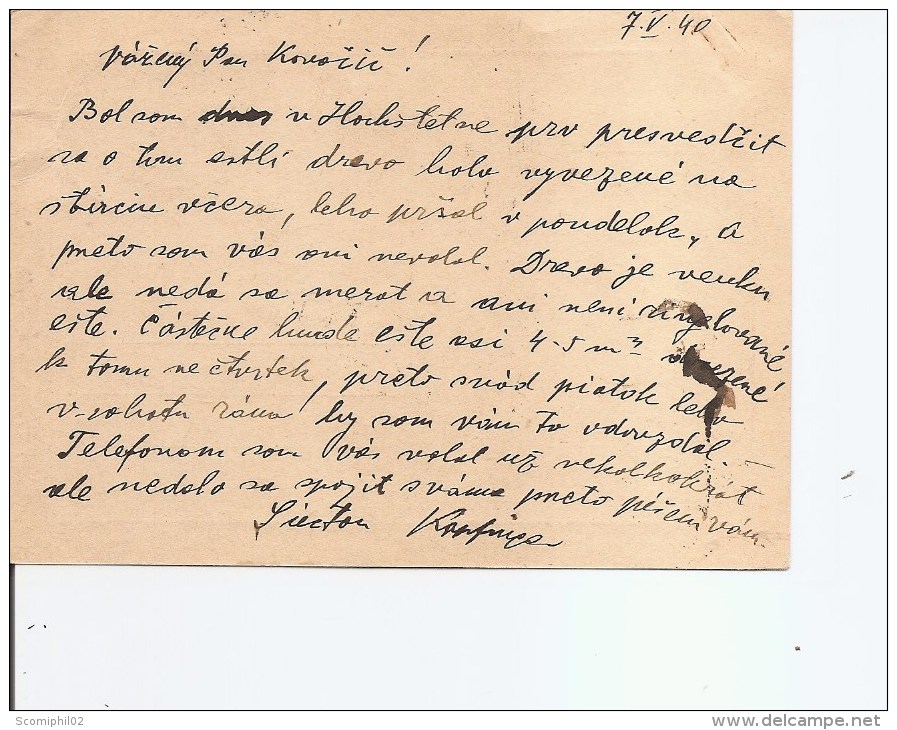 7.V.40
Vážený Pan Kovačič!
Bol som dnes v Hochstetne prv presvedčit
sa o tom estli drevo bolo vyvezené na
včera, lebo pršal v pondelok, a
preto som vás ani nevolal. Drevo je venku
ale nedá sa merat a ani neni
ešte. Částečne bude ešte asi 4-5 m³
k tomu ne čtvrtek, preto snád piatok lebo
v sobotu rána by som vám to odovzdal.
Telefonom som vás volal už nekolkokrát
ale nedalo sa spojit s váma preto píšem vám.
Scomiphil02
www.delcampe.net